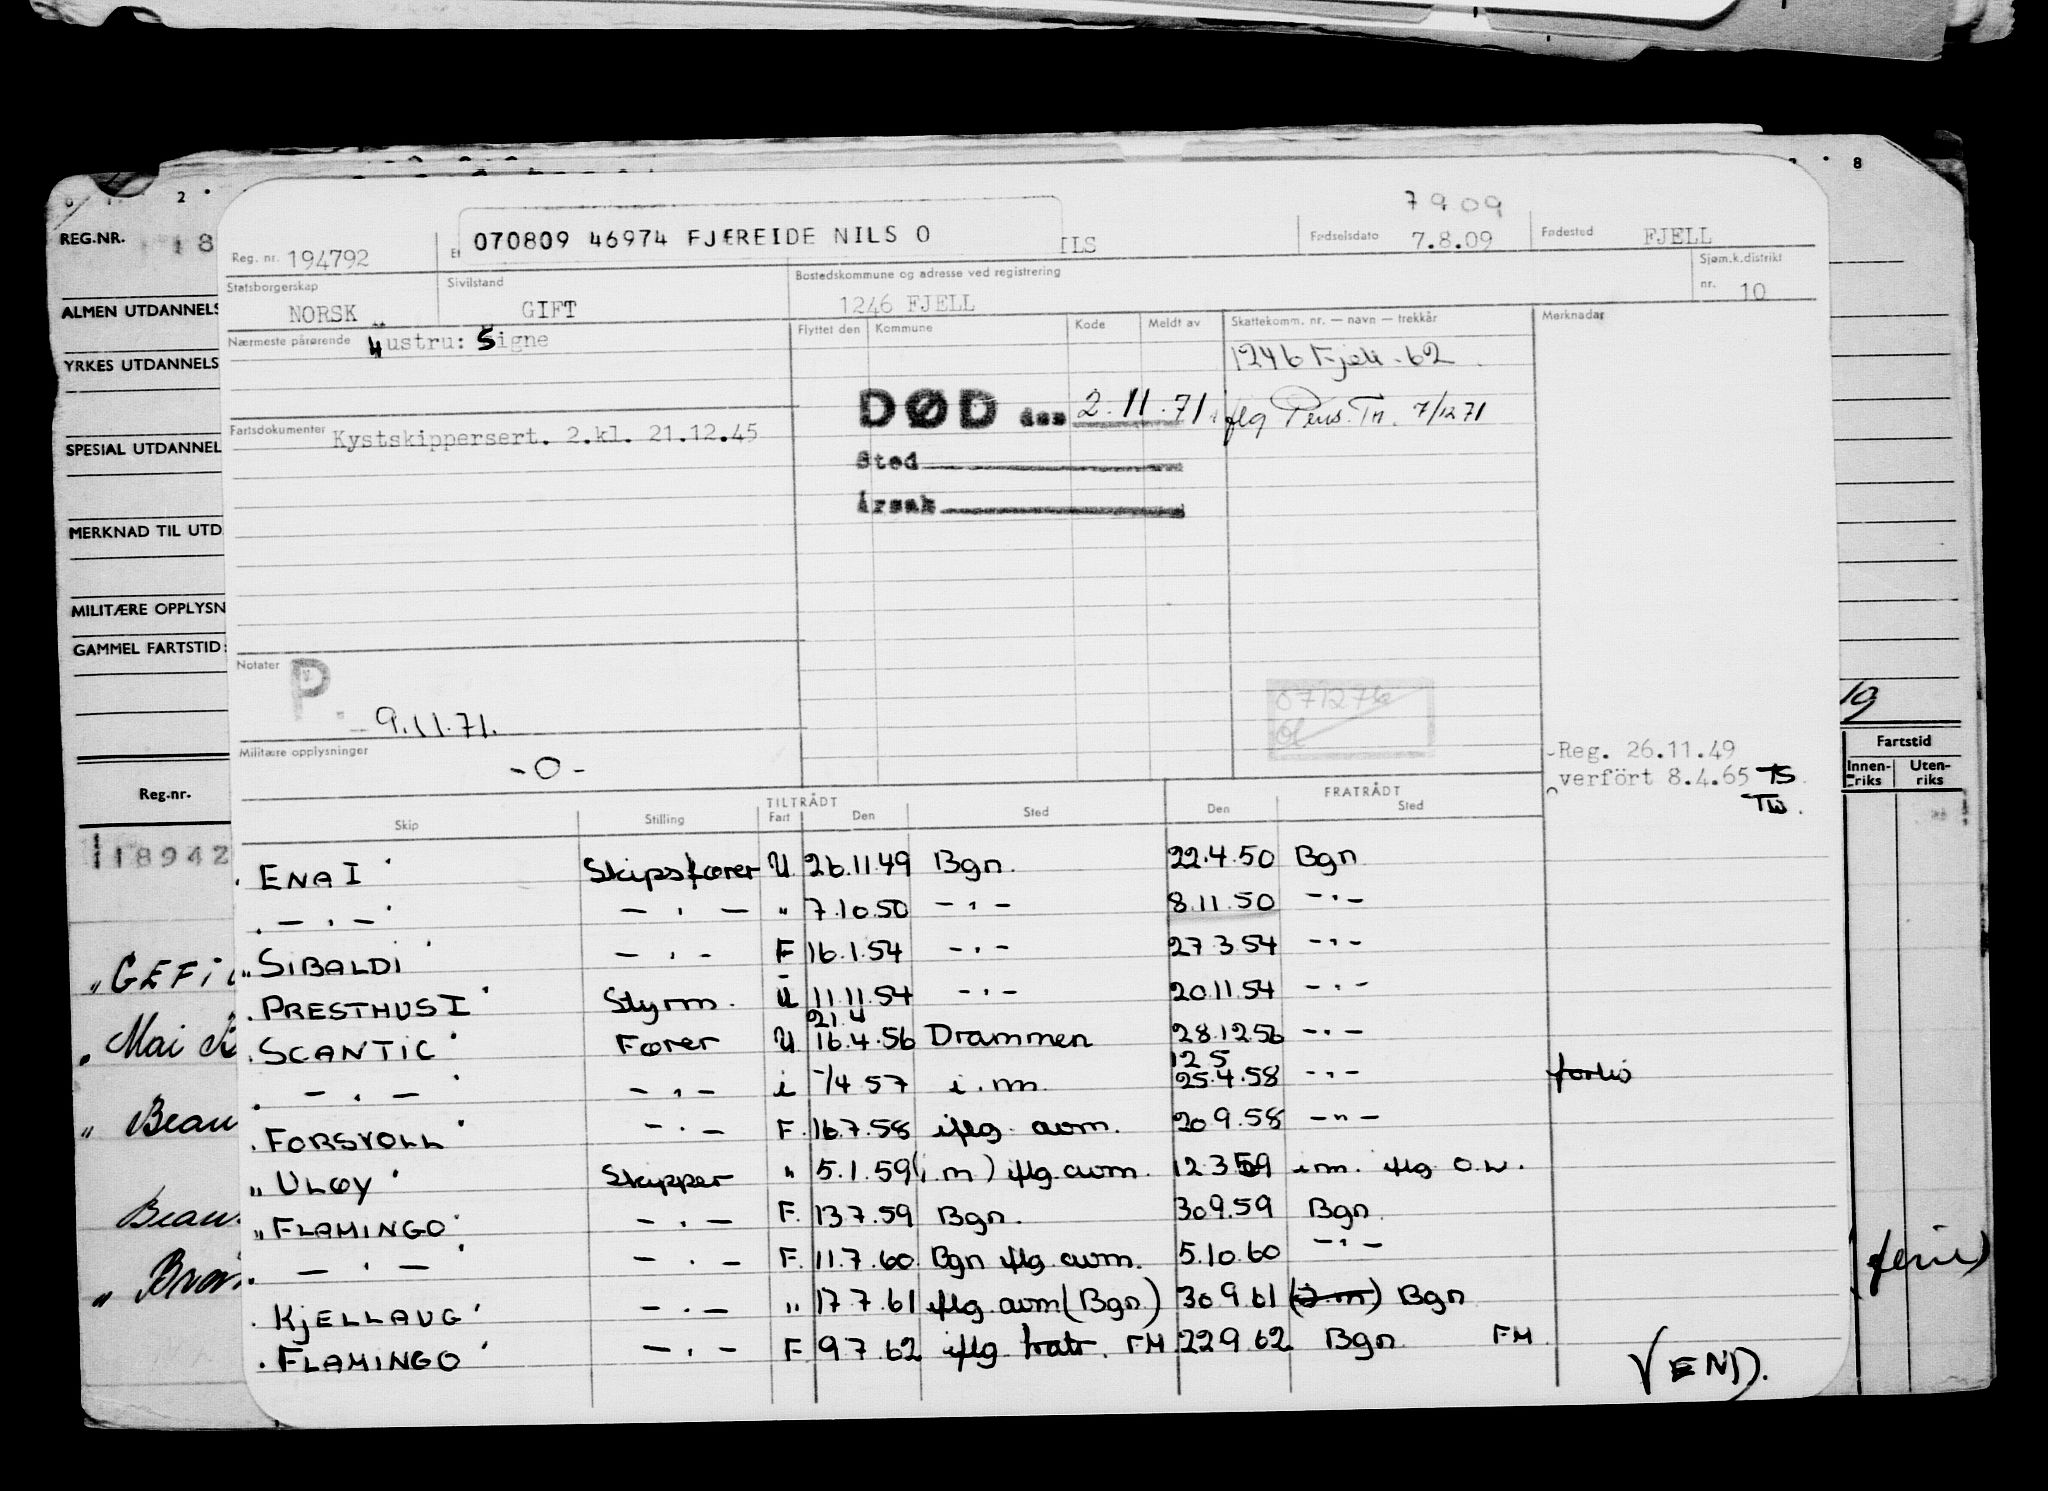 2 8
REG.NR. 18
ALMEN UTDANNELS
YRKES UTDANNELS
SPESIAL UTDANNEL
MERKNAD TIL UTD
MILITÆRE OPPLYSN
GAMMEL FARTSTID:
Reg.nr.
18942
"GEFi
"Mai
" Beau
Beau
" Bra
7 9 09
Reg. nr. 194792 070809 46974 FJÆREIDE NILS O ILS Fødselsdato 7.8.09 Fødested FJELL
Statsborgerskap NORSK Sivilstand GIFT Bostedskommune og adresse ved registrering 1246 FJELL Sjøm.k.distrikt nr. 10
Nærmeste pårørende Hustru: Signe Flyttet den Kommune Kode Meldt av Skattekomm. nr. — navn — trekkår Merknader
1246 Fjell - 62
DØD den 2.11.71. iflg Pens. Tr. 7/12 71
Fartsdokumenter Kystskippersert. 2.kl. 21.12.45
Sted
Årsak
Notater P. 9.11.71.
071276
Militære opplysninger -0-
Reg. 26.11.49
overført 8.4.65 TS
TW.
TILTRÅDT FRATRÅDT
Skip Stilling Fart Den Sted Den Sted
ENA I Skipsfører U 26.11.49 Bgn. 22.4.50 Bgn
- " - - " - " 7.10.50 - " - 8.11.50 - " -
"SIBALDI - " - F 16.1.54 - " - 27 3.54 - " -
PRESTHUS I Styrm. U 11.11.54 - " - 20.11.54 - " -
21.4
SCANTIC Fører U 16.4.56 Drammen 28.12.56 - " -
12 5
- " - - " - i -/4 57 i.m. 25.4.58 - " -
FORSVOLL - " - F. 16.7.58 iflg. avm. 20 9.58 - " -
"ULØY Skipper " 5.1.59 (i.m) iflg. avm. 12 3 59 i m. iflg O.W.
"FLAMINGO - " - F. 13 7.59 Bgn. 30 9.59 Bgn.
- " - - " - F. 11.7.60 Bgn iflg. avm. 5.10.60 - " -
KjELLAUG - " - " 17 7.61 iflg. avm (Bgn) 30 9.61 (i.m) Bgn
FLAMINGO - " - F 9 7.62 iflg. fratr. FM 22 9.62 Bgn FM
VEND.
19
Fartstid
Innenriks Utenriks
ferie)